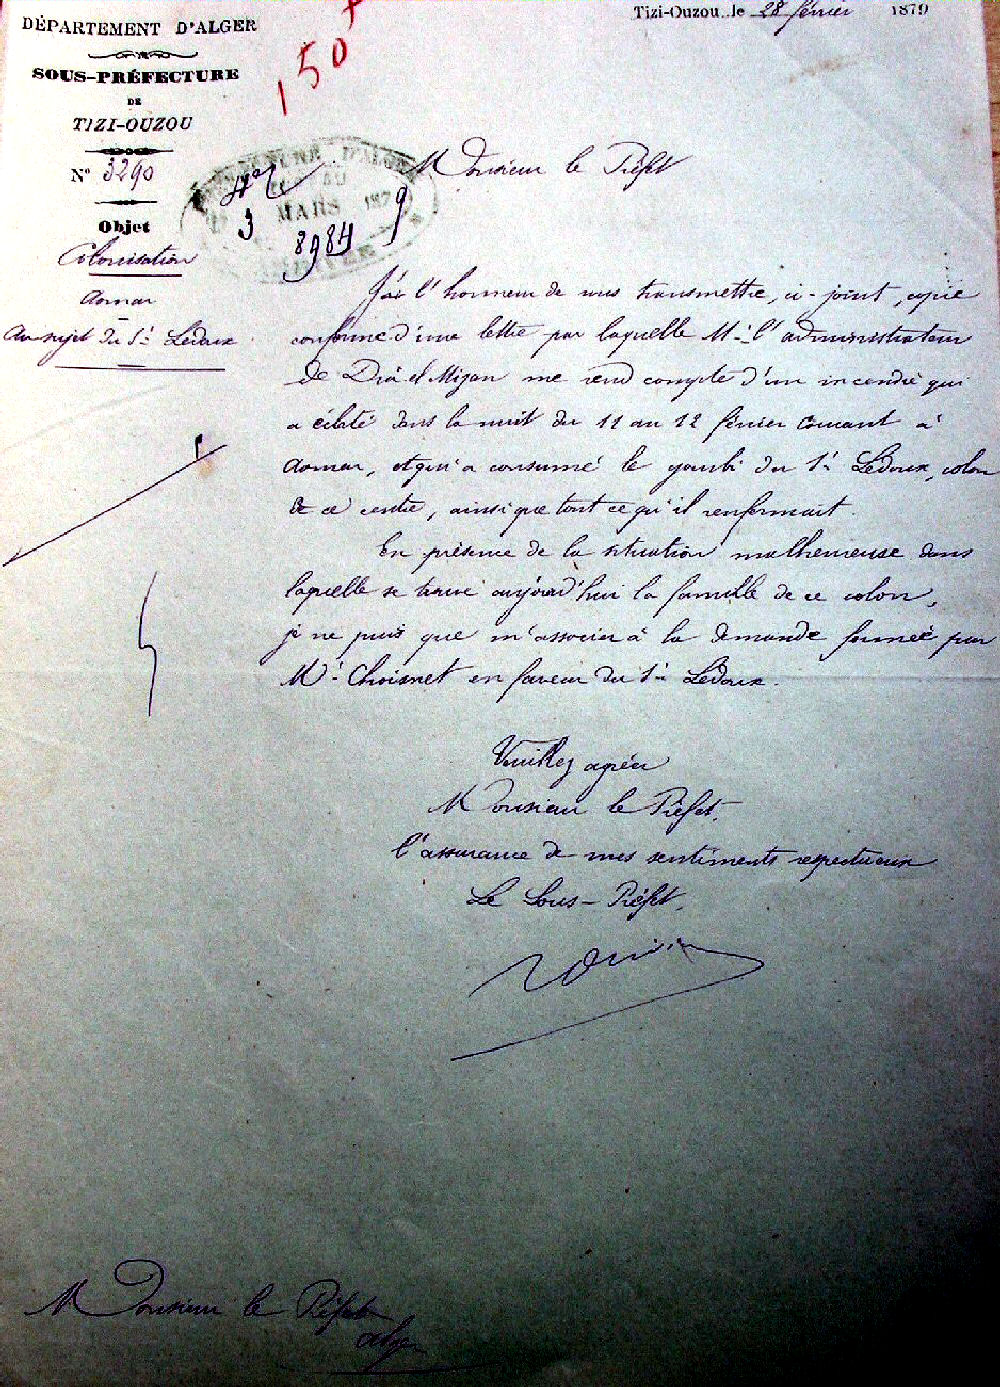 DÉPARTEMENT D'ALGER
SOUS-PRÉFECTURE
DE
TIZI-OUZOU
N° 3290
Objet
Colonisation
Aomar
Au sujet du Sr Ledoux
Tizi-Ouzou, le 28 février 1879
150 f
D'ALGER
3 MARS 187 9
8984
Monsieur le Préfet
J'ai l'honneur de vous transmettre, ci-joint, copie
conforme d'une lettre par laquelle Mr l'administrateur
de Drâ el Mizan me rend compte d'un incendie qui
a éclaté dans la nuit du 11 au 12 février courant à
Aomar, et qui a consumé le gourbi du Sr Ledoux, colon
de ce centre, ainsi que tout ce qu'il renfermait.
En présence de la situation malheureuse dans
laquelle se trouve aujourd'hui la famille de ce colon,
je ne puis que m'associer à la demande formée par
Mr Choisnet en faveur du Sr Ledoux.
Veuillez agréer
Monsieur le Préfet,
l'assurance de mes sentiments respectueux
Le Sous-Préfet,
Monsieur le Préfet
Alger